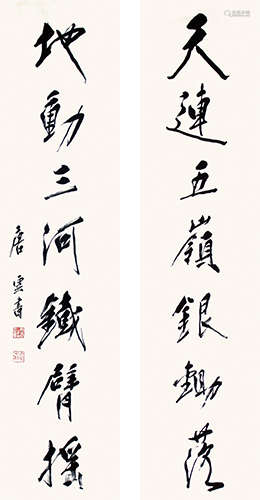 天連五嶺銀鋤落
地動三河鐵臂摇
唐雲書